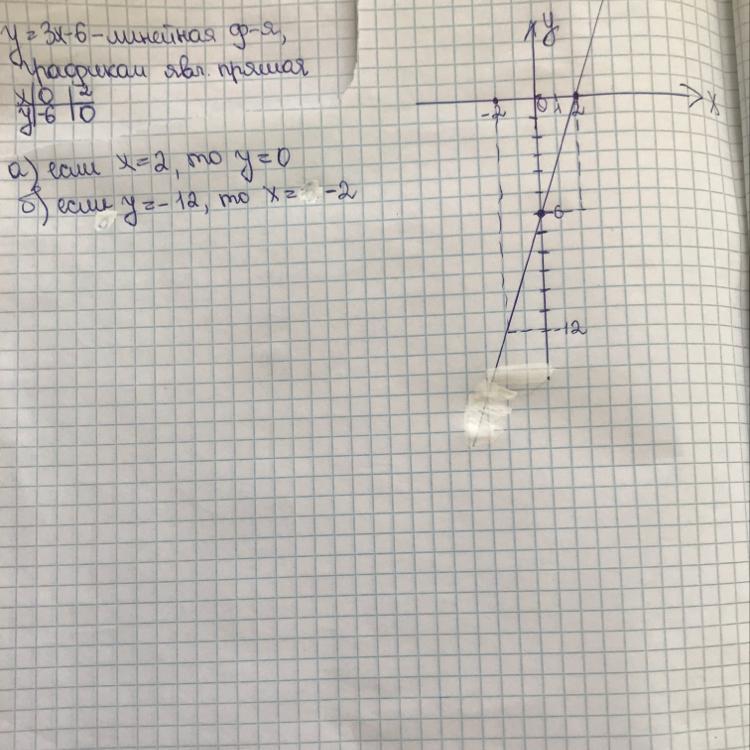 y = 3x-6 - линейная ф-я,
графиком явл. прямая
x 0 2
y -6 0
а) если x=2, то y=0
б) если y=-12, то x= -2
y
-2 0 1 2 x
-6
-12